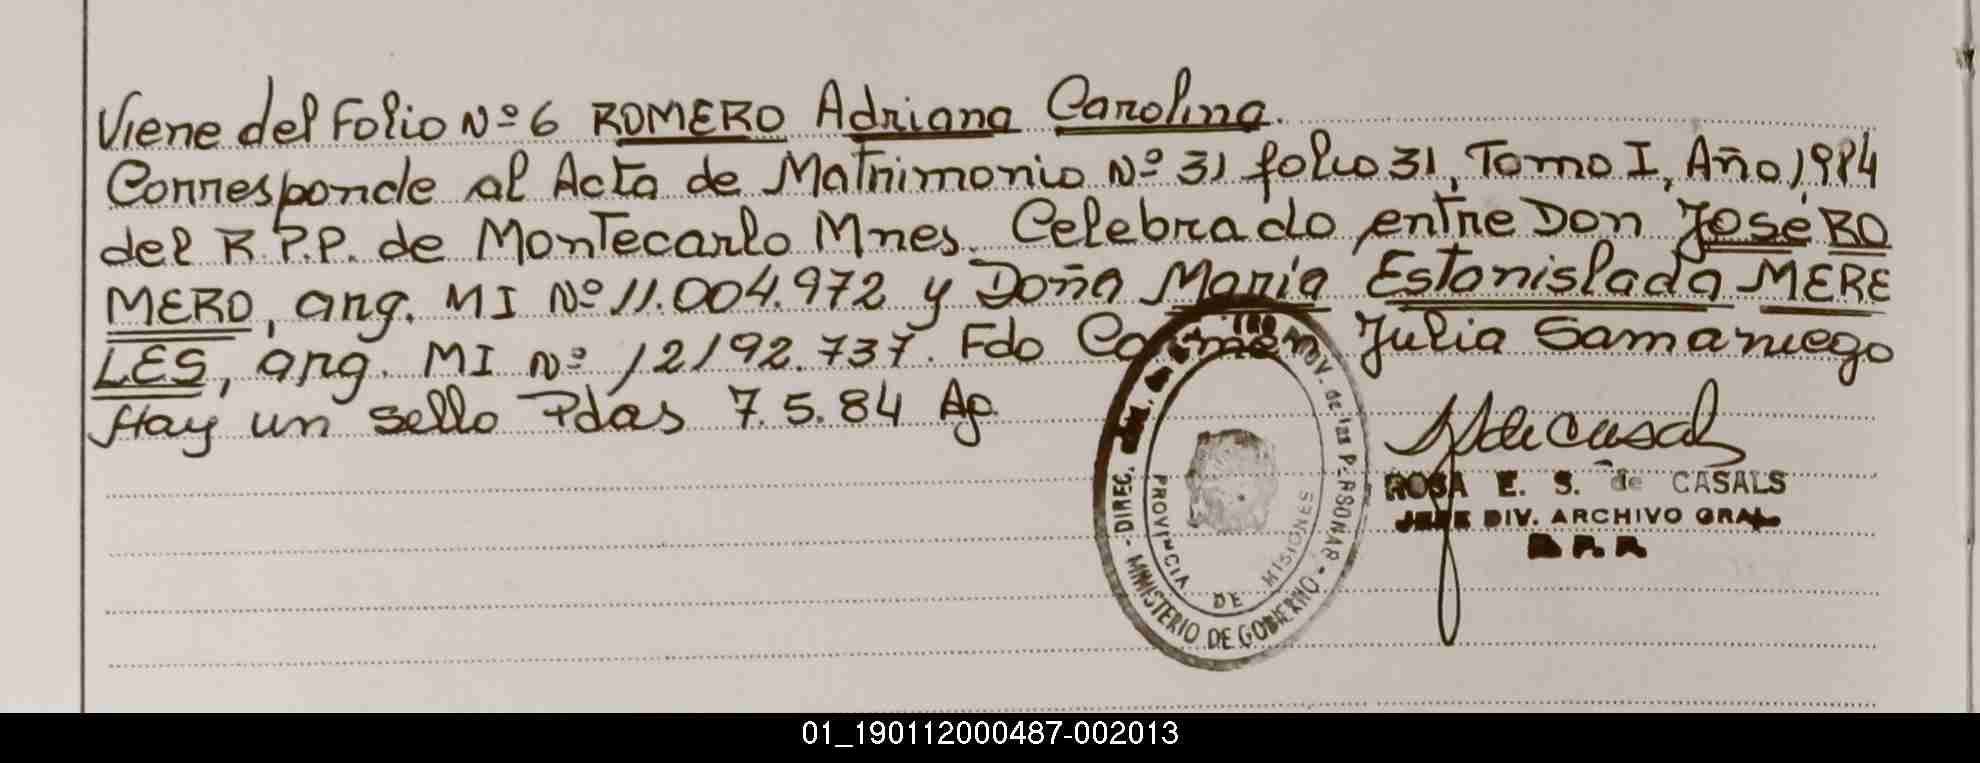 Viene del Folio Nº 6 ROMERO Adriana Carolina.
Corresponde al Acta de Matrimonio Nº 31 folio 31, Tomo I, Año 1984
del R.P.P. de Montecarlo Mnes. Celebrado entre Don José RO
MERO, arg. MI Nº 11.004.972 y Doña María Estanislada MERE
LES, arg. MI Nº 12192.737. Fdo Carmen Julia Samaniego
Hay un sello Pdas 7.5.84 Ap.
DIREC. PROV. de las PERSONAS
MINISTERIO DE GOBIERNO
PROVINCIA DE MISIONES
ROSA E. S. de CASALS
JEFE DIV. ARCHIVO GRAL
01_190112000487-002013